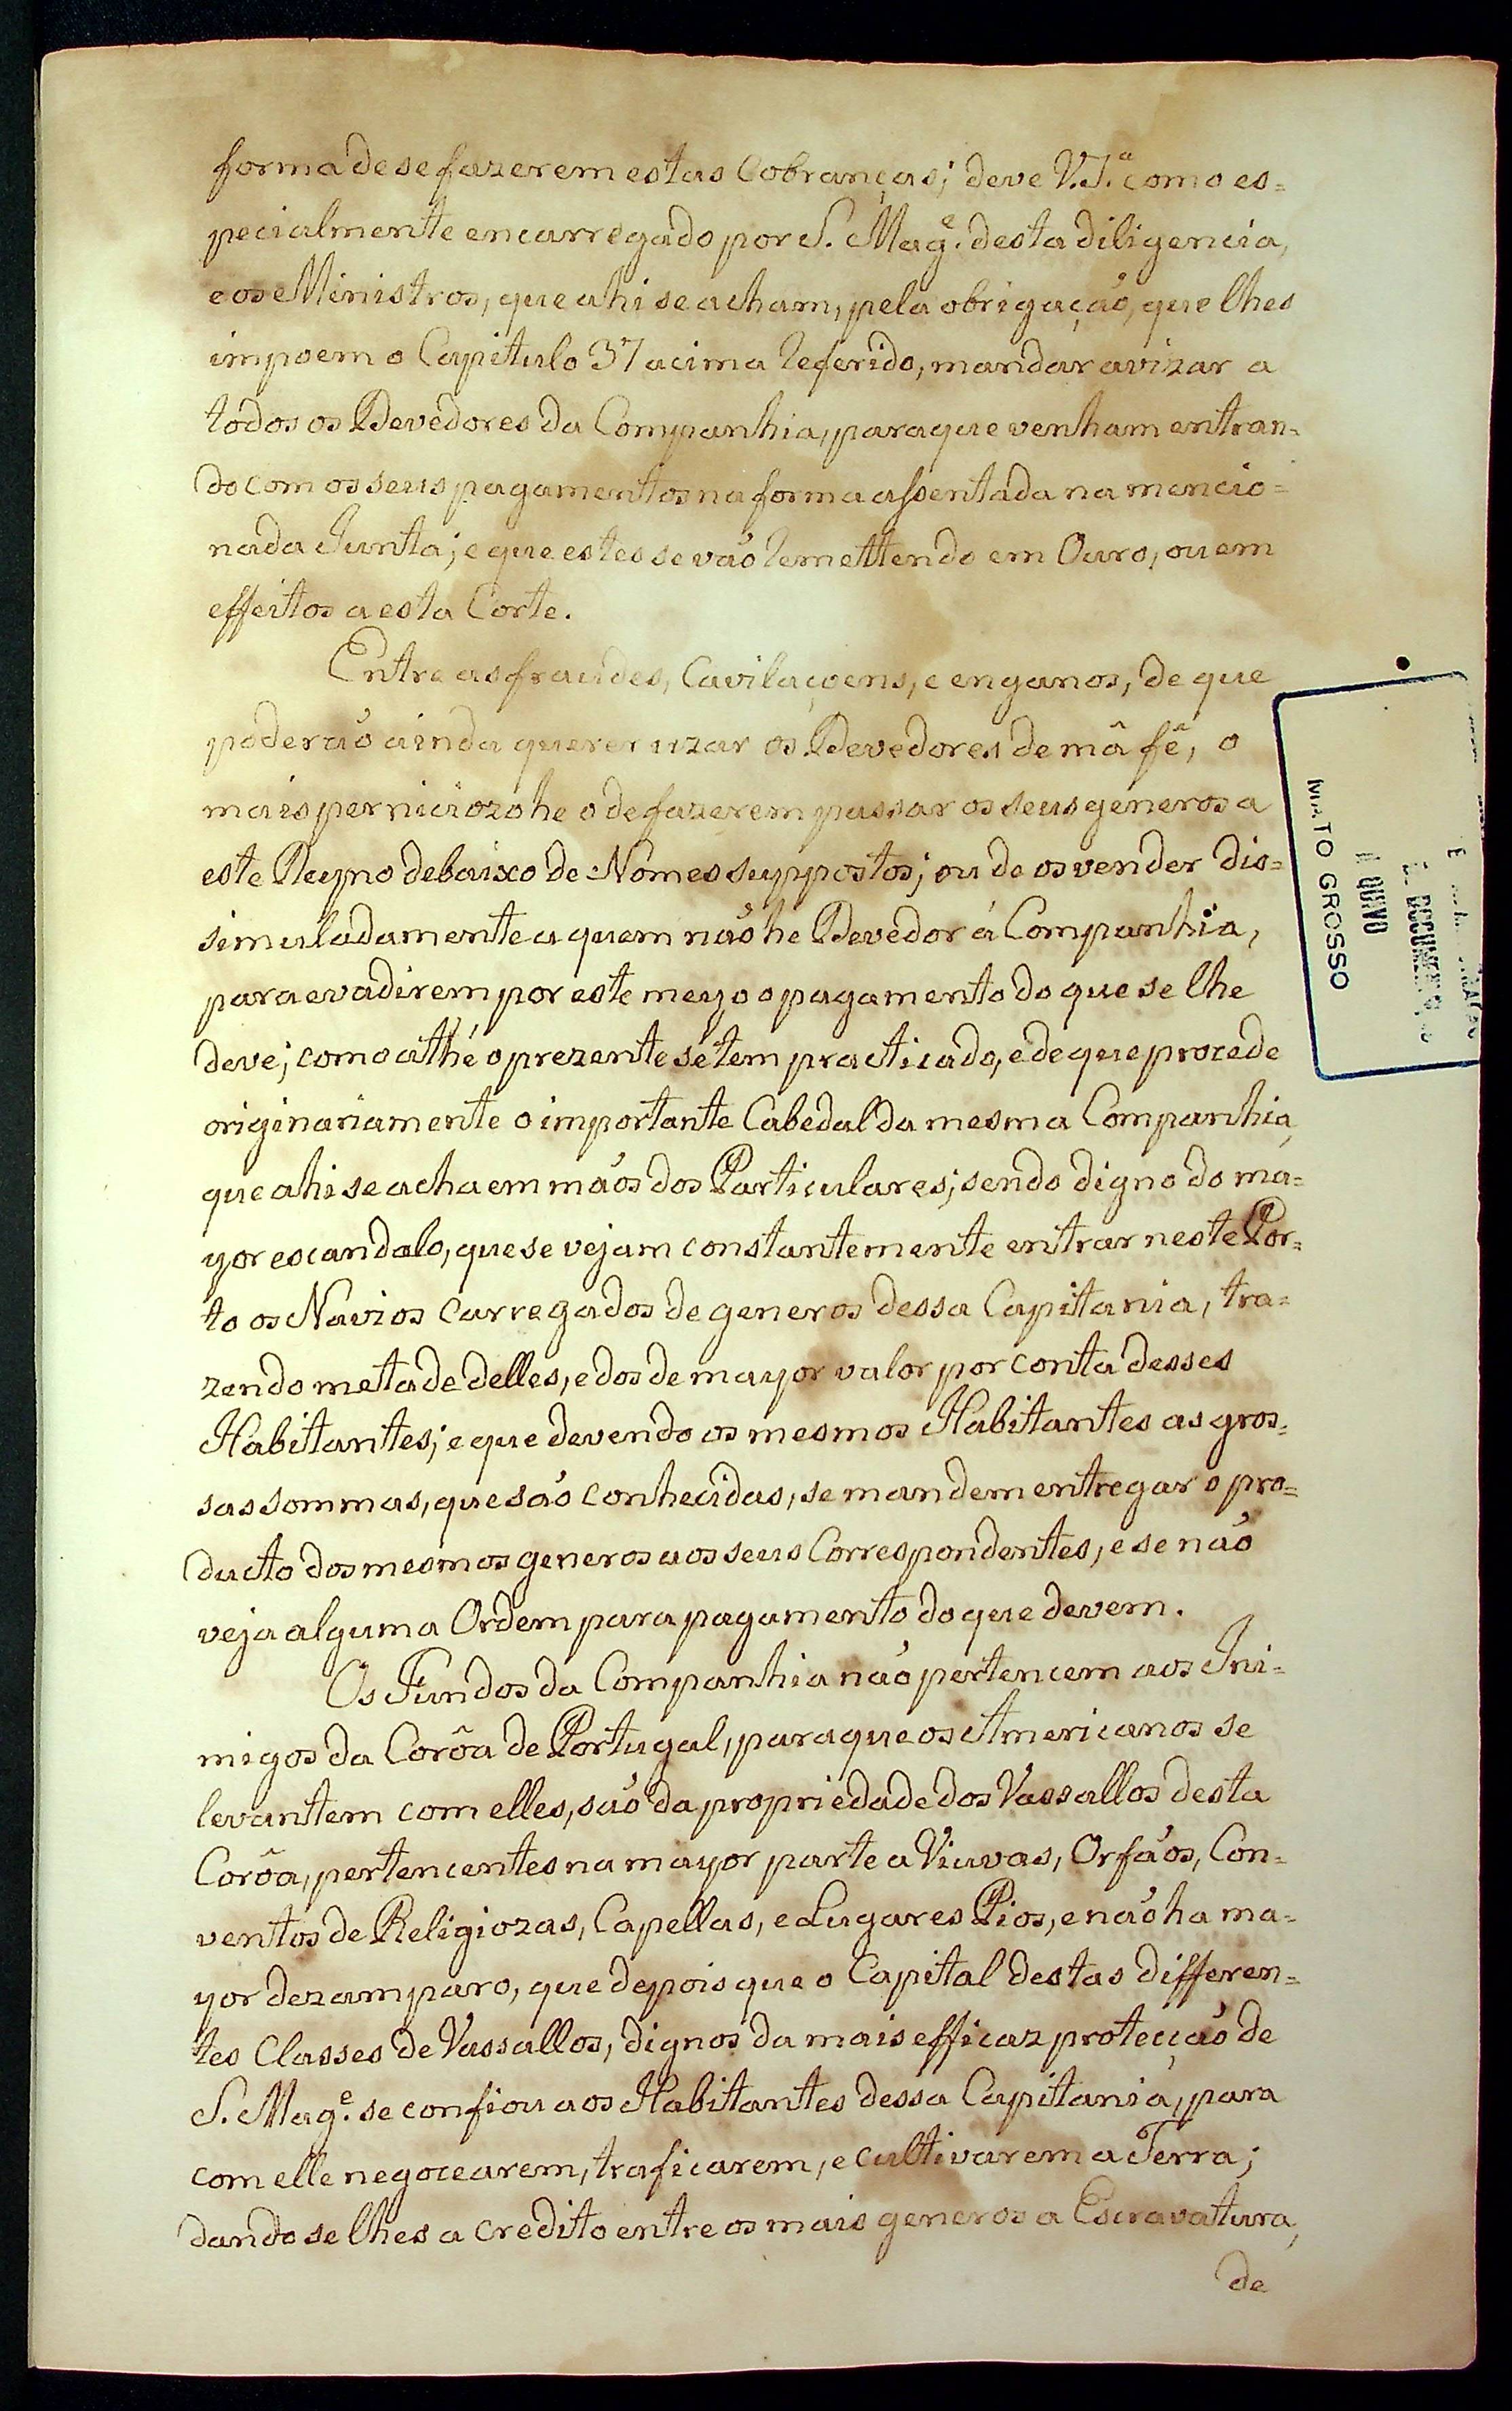 forma de se fazerem estas Cobranças; deve V. S.ª como es=
pecialmente encarregado por S. Mag.e desta diligencia,
e os Ministros, que ahi se acham, pela obrigação, que lhes
impoem o Capitulo 37 acima referido, mandar avizar a
todos os Devedores da Companhia, para que venham entran=
do com os seus pagamentos na forma assentada na mencio=
nada Junta; e que estes se vão remettendo em Ouro, ou em
effeitos a esta Corte.
Entre as fraudes, Cavilaçoens, e enganos, de que
poderão ainda querer uzar os Devedores de mâ fê, o
mais perniciozo he o de fazerem passar os seus generos a
este Reyno debaixo de Nomes suppostos; ou de os vender dis=
simuladamente a quem não he Devedor á Companhia,
para evadirem por este meyo o pagamento do que se lhe
deve; como athé o prezente se tem practicado, e de que procede
originariamente o importante Cabedal da mesma Companhia,
que ahi se acha em mãos dos Particulares; sendo digno do ma=
yor escandalo, que se vejam constantemente entrar neste Por=
to os Navios carregados de generos dessa Capitania, tra=
zendo metade delles, e dos de mayor valor por conta desses
Habitantes; e que devendo os mesmos Habitantes as gros=
sas sommas, que são conhecidas, se mandem entregar o pro=
ducto dos mesmos generos aos seus Correspondentes, e se não
veja alguma Ordem para pagamento do que devem.
Os Fundos da Companhia não pertencem aos Ini=
migos da Corôa de Portugal, para que os Americanos se
levantem com elles, são da propriedade dos Vassallos desta
Corôa, pertencentes na mayor parte a Viuvas, Orfãos, Con=
ventos de Religiozas, Capellas, e Lugares Pios, e não ha ma=
yor dezamparo, que depois que o Capital destas differen=
tes Classes de Vassallos, dignos da mais efficaz protecção de
S. Mag.e se confiou aos Habitantes dessa Capitania, para
com elle negocearem, traficarem, e cultivarem a Terra;
dando se lhes a credito entre os mais generos a Escravatura,
de
MATO GROSSO